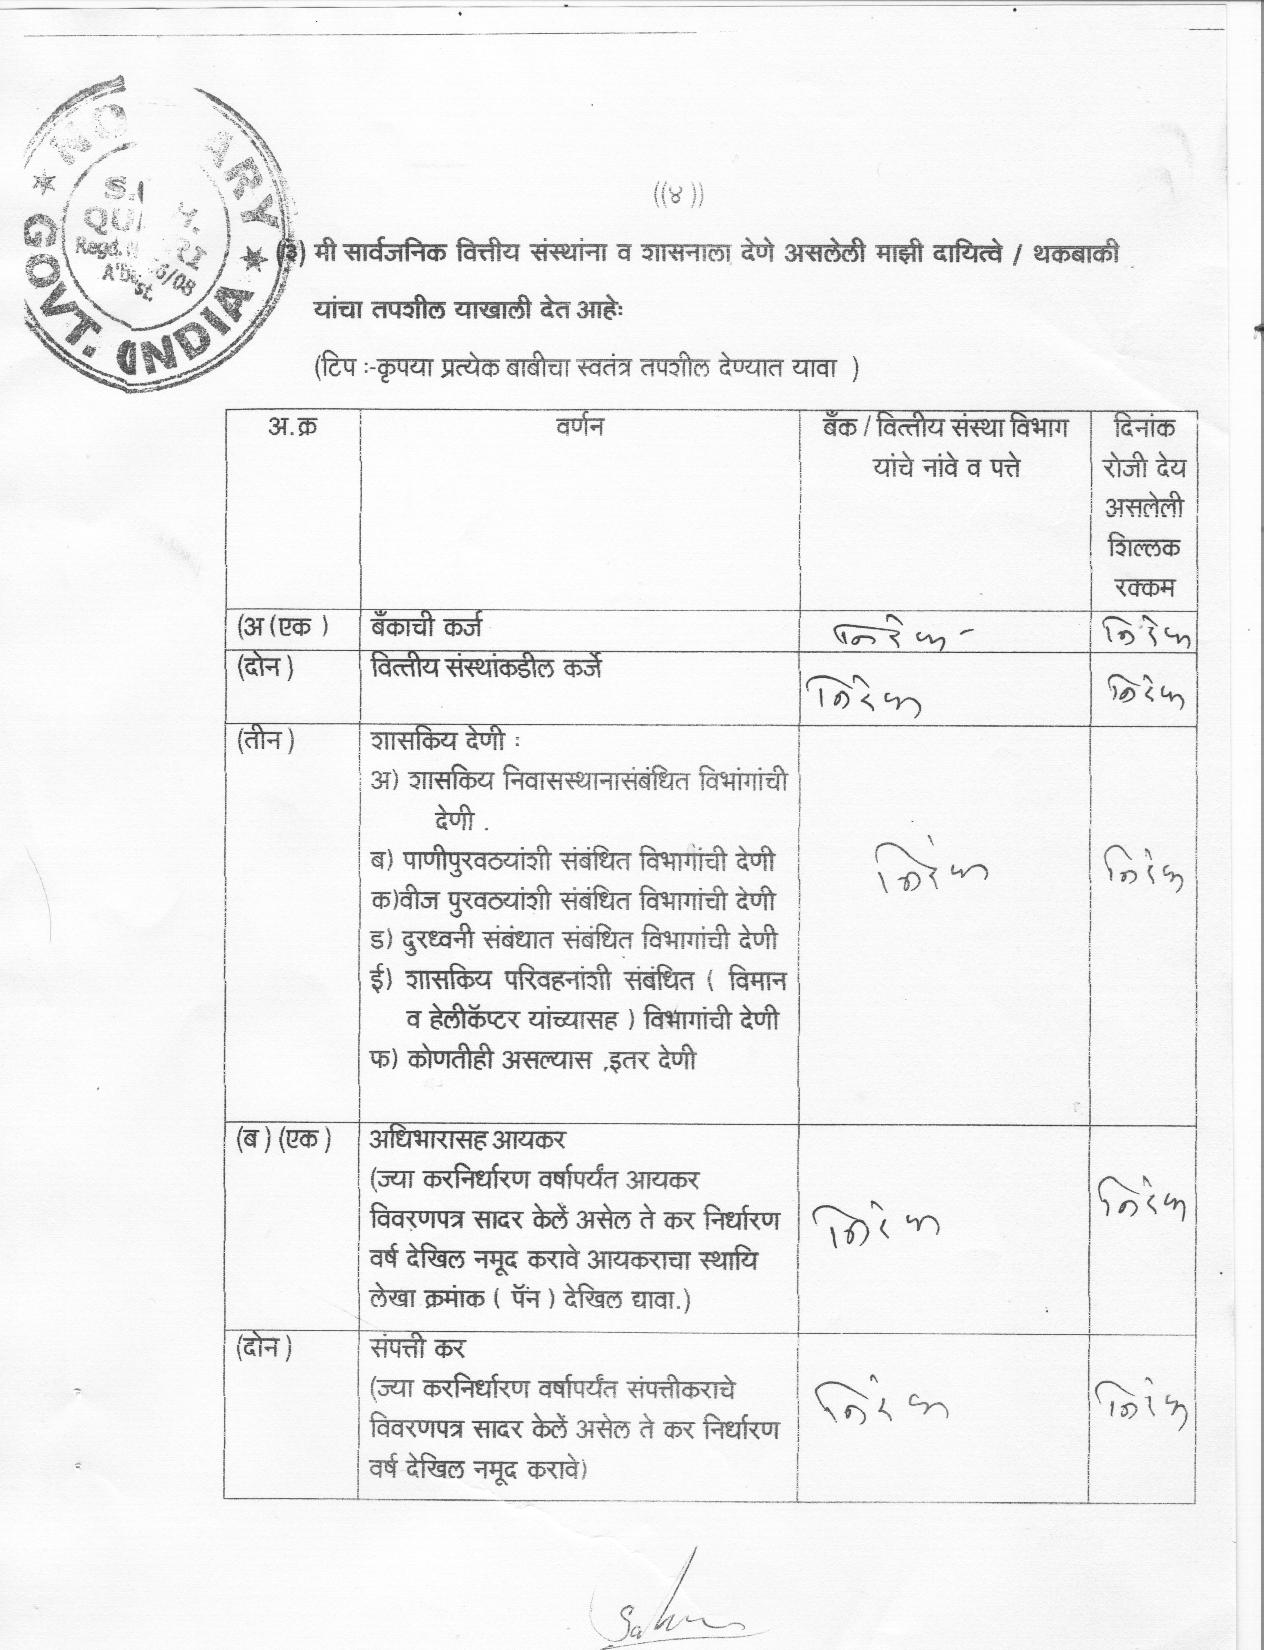 NO ARY
GOVT. INDIA
S.
QU
Regd.
6/08
A'B st.
((४))
(३) मी सार्वजनिक वित्तीय संस्थांना व शासनाला देणे असलेली माझी दायित्वे / थकबाकी
यांचा तपशील याखाली देत आहेः
(टिप :-कृपया प्रत्येक बाबीचा स्वतंत्र तपशील देण्यात यावा )
अ.क्र वर्णन बँक / वित्तीय संस्था विभाग दिनांक
यांचे नांवे व पत्ते रोजी देय
असलेली
शिल्लक
रक्कम
(अ (एक ) बँकाची कर्ज निरंक - निरंक
(दोन ) वित्तीय संस्थांकडील कर्जे निरंक निरंक
(तीन ) शासकिय देणी :
अ) शासकिय निवासस्थानासंबंधित विभांगांची
देणी .
ब) पाणीपुरवठयांशी संबंधित विभागांची देणी निरंक निरंक
क)वीज पुरवठयांशी संबंधित विभागांची देणी
ड) दुरध्वनी संबंधात संबंधित विभागांची देणी
ई) शासकिय परिवहनांशी संबंधित ( विमान
व हेलीकॅप्टर यांच्यासह ) विभागांची देणी
फ) कोणतीही असल्यास ,इतर देणी
(ब ) (एक ) अधिभारासह आयकर
(ज्या करनिर्धारण वर्षापर्यंत आयकर
विवरणपत्र सादर केलें असेल ते कर निर्धारण निरंक निरंक
वर्ष देखिल नमूद करावे आयकराचा स्थायि
लेखा क्रमांक ( पॅन ) देखिल द्यावा.)
(दोन ) संपत्ती कर
(ज्या करनिर्धारण वर्षापर्यंत संपत्तीकराचे निरंक निरंक
विवरणपत्र सादर केलें असेल ते कर निर्धारण
वर्ष देखिल नमूद करावे)